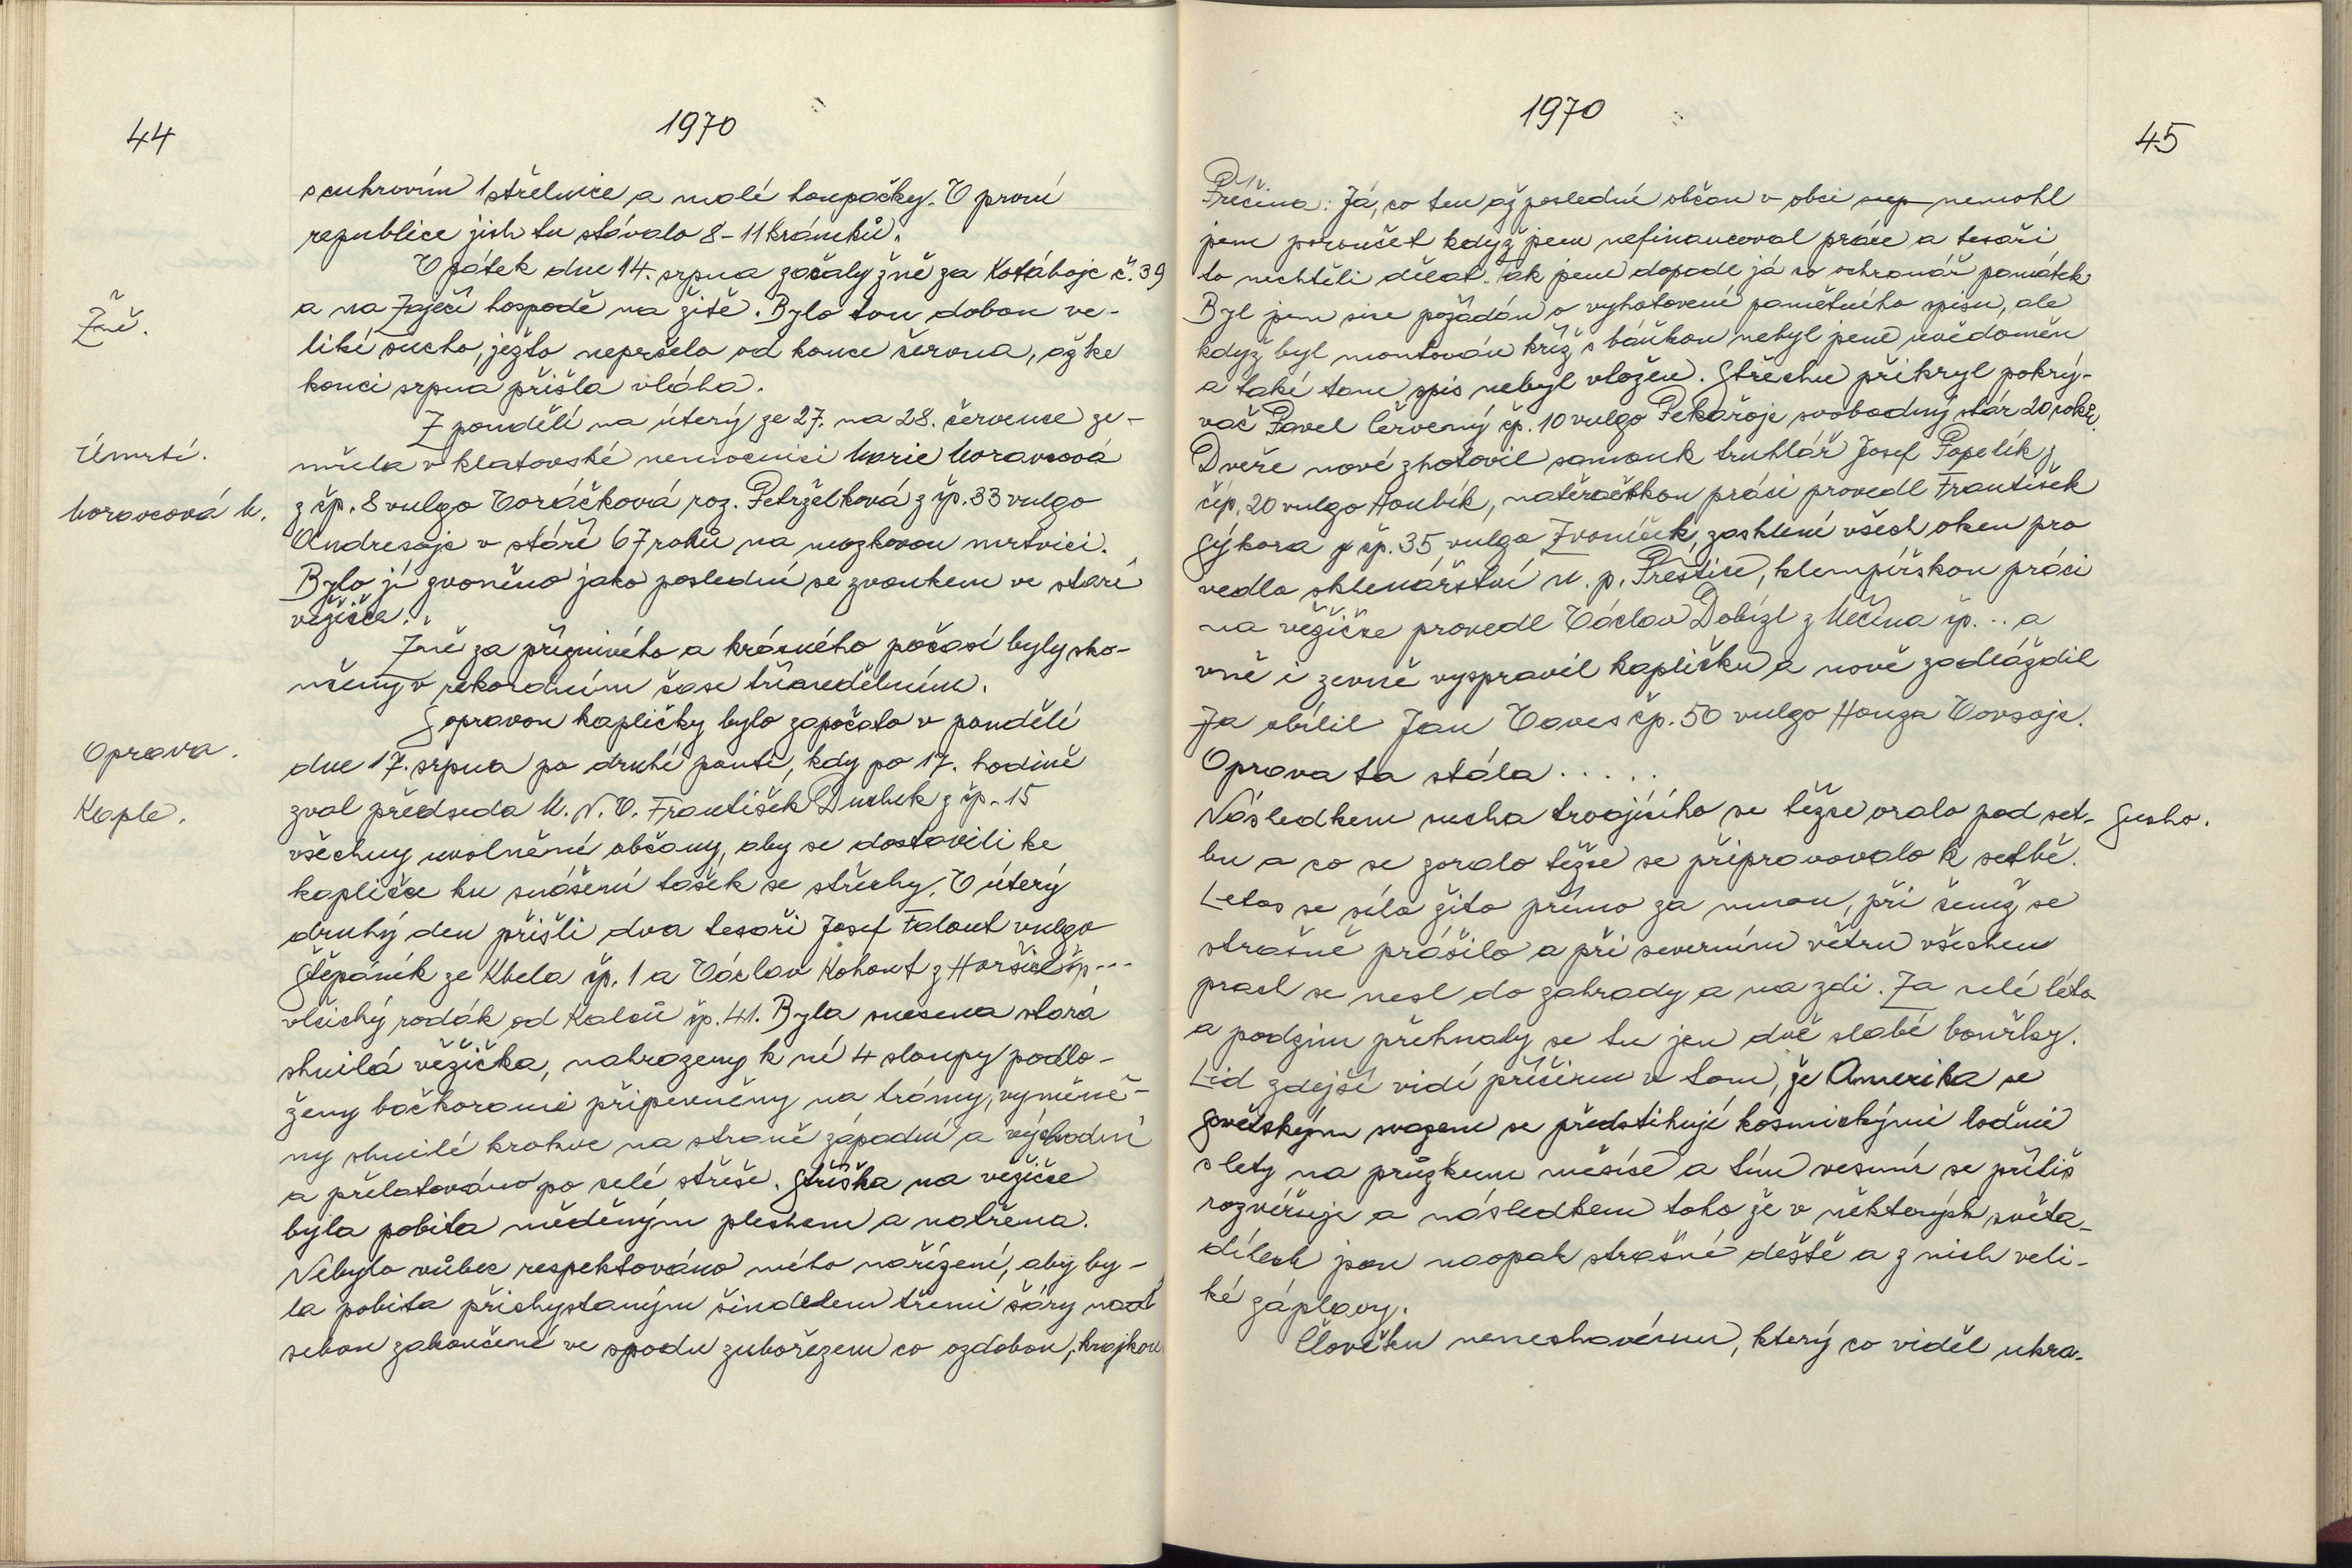 44
1970
s cukrovím 1 střelnice a malé houpačky. V první
republice jich tu stávalo 8-11 krámků.
V pátek dne 14. srpna začaly žně za Kotábojc č. 39
Žně.
a na Zaječí hospodě na žitě. Bylo tou dobou ve-
liké sucho, ježto nepršelo od konce června, až ke
konci srpna přišla vláha.
Z pondělí na úterý ze 27. na 28. července ze-
Úmrtí.
mřela v klatovské nemocnici Marie Moravcová
Moravcová M.
z čp. 8 vulgo Voráčková roz. Petrželková z čp. 33 vulgo
Andresojc v stáří 67 roků na mozkovou mrtvici.
Bylo jí zvoněno jako poslední se zvonkem ve staré
věžičce.
Žně za příznivého a krásného počasí byly sko-
nčeny v rekordním čase třínedělním.
S opravou kapličky bylo započato v pondělí
Oprava.
dne 17. srpna po druhé pouti, kdy po 17. hodině
Kaple.
zval předseda M. N. V. František Duchek z čp. 15
všechny uvolněné občany, aby se dostavili ke
kapličce ku snášení tašek se střechy. V úterý
druhý den přišli dva tesaři Josef Falout vulgo
Štěpáník ze Kbela čp. 1 a Václav Kohout z Horšic čp...
vlčický rodák od Kalců čp. 41. Byla snesena stará
shnilá věžička, nahrazeny k ní 4 sloupy podlo-
ženy bačkorami připevněny na trámy, vyměně-
ny shnilé krokve na straně západní a východní
a přelatováno po celé střeše. Stříška na věžičce
byla pobita měděným plechem a natřena.
Nebylo vůbec respektováno mého nařízení, aby by-
la pobita přichystaným šindelem třemi šáry nad
sebou zakončené ve spodu zubořezem co ozdobou, krajkou
1970
45
Příčina: Já, co ten až poslední občan v obci nep nemohl
jsem poroučet když jsem nefinancoval práce a tesaři
to nechtěli dělat. Tak jsem dopadl já co ochranář památek.
Byl jsem sice požádán o vyhotovení pamětného spisu, ale
když byl montován kříž s báňkou nebyl jsem uvědoměn
a také tam spis nebyl vložen. Střechu přikryl pokrý-
vač Pavel Červený čp. 10 vulgo Pekařojc svobodný stár 20 roků.
Dveře nové zhotovil samouk truhlář Josef Popelík z
čip. 20 vulgo Houbík, natěračskou práci provedl František
Sýkora z čp. 35 vulgo Zvoníček, zasklení všech oken pro
vedlo sklenářství n. p. Přeštice, klempířskou práci
na věžičce provedl Václav Dobízl z Měčína čp... a
vně i zevně vyspravil kapličku a nově zadláždil
Ja obílil Jan Voves čp. 50 vulgo Honza Vovsojc.
Oprava ta stála.....
Následkem sucha trvajícího se těžce oralo pod set-
Sucho.
bu a co se zoralo těžce se připravovalo k setbě.
Letos se sílo žito přímo za mnou, při čemž se
strašně prášilo a při severním větru všechen
prach se nesl do zahrady a na zdi. Za celé léto
a podzim přehnaly se tu jen dvě slabé bouřky.
Lid zdejší vidí příčinu v tom, že Amerika se
Sovětským svazem se předstihují kosmickými loďmi
s lety na průzkum měsíce a tím vesmír se příliš
rozvěřuje a následkem toho že v některých světa-
dílech jsou naopak strašné deště a z nich veli-
ké záplavy.
Človětu nenechavému, který co viděl ukra-